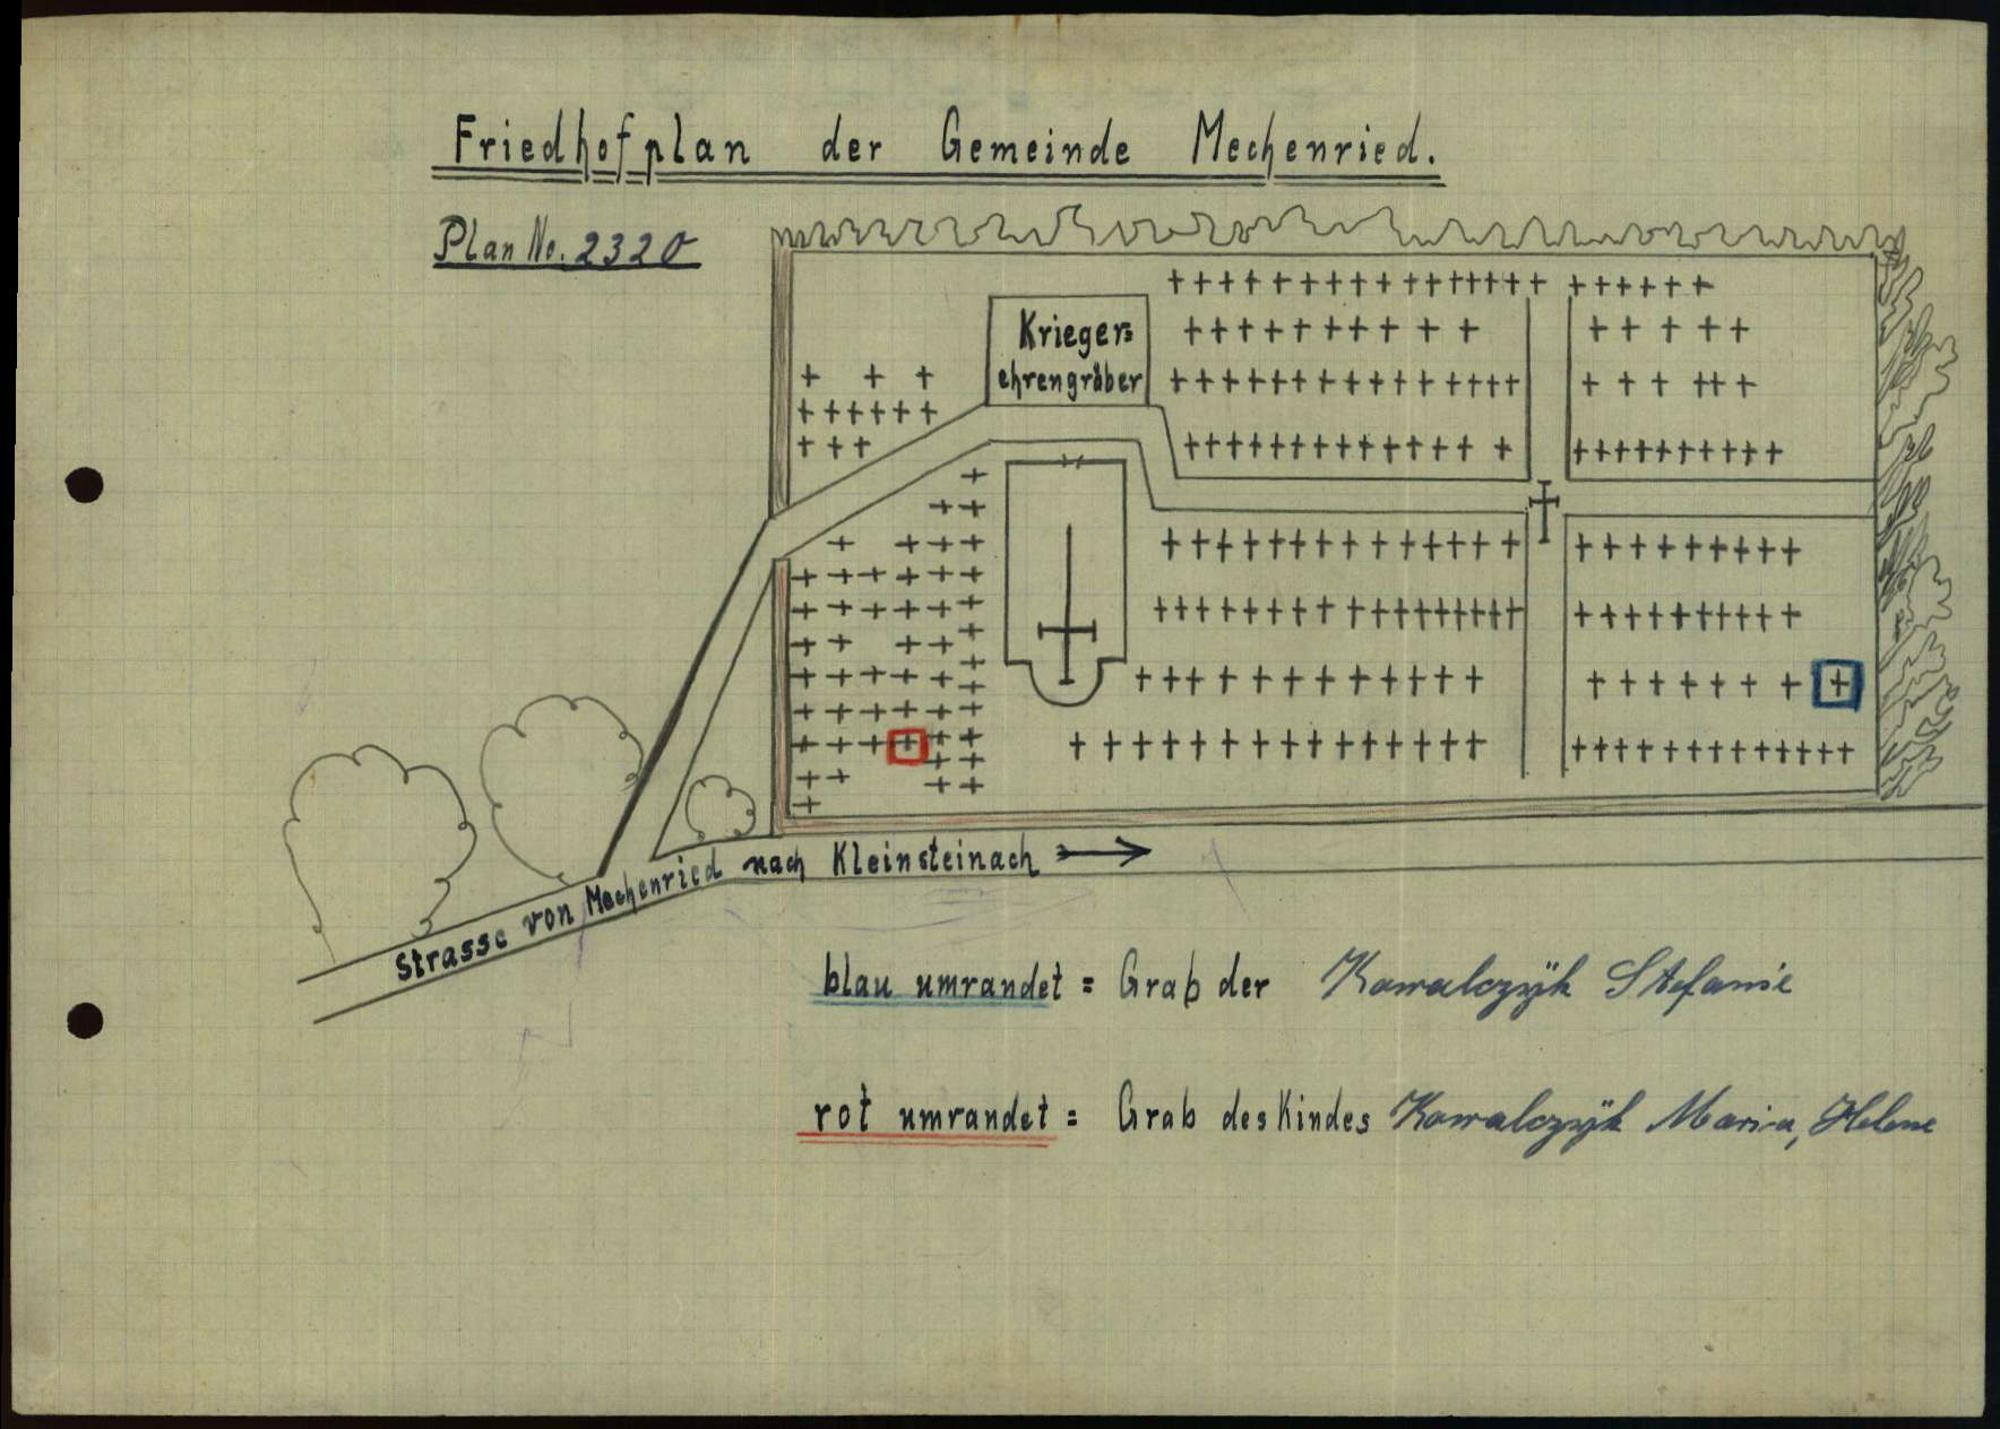 Friedhofplan der Gemeinde Mechenried.
Plan No. 2320
Krieger=
ehrengräber
Strasse von Mechenried nach Kleinsteinach
blau umrandet = Grab der Kowalczÿk Stefanie
rot umrandet = Grab des Kindes Kowalczÿk Maria, Helene